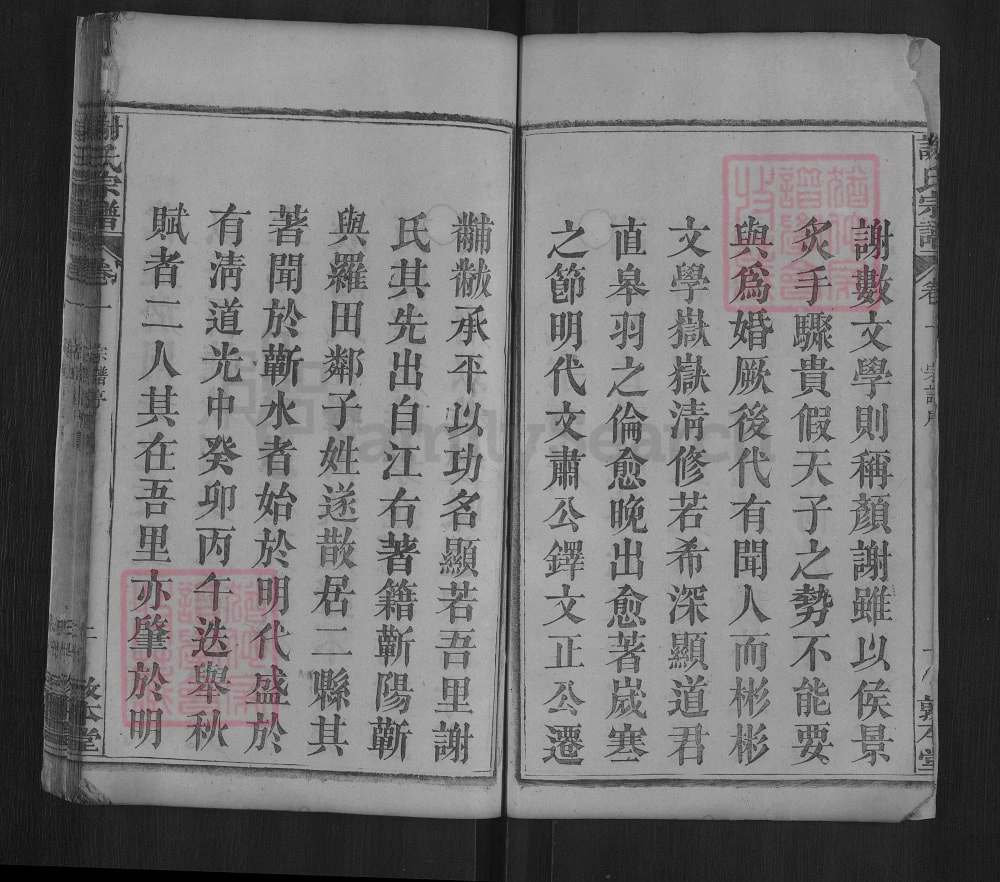 謝數文學則稱顏謝雖以侯景
炙手驟貴假天子之勢不能要
與爲婚厥後代有聞人而彬彬
文學嶽嶽淸修若希深顯道君
直皋羽之倫愈晚出愈著嵗寒
之節明代文肅公鐸文正公遷
黼黻承平以功名顯若吾里謝
氏其先出自江右著籍蘄陽蘄
與羅田鄰子姓遂散居二縣其
著聞於蘄水者始於明代盛於
有淸道光中癸卯丙午迭舉秋
賦者二人其在吾里亦肇於明
謝氏宗譜
卷一
宗譜序
敦本堂